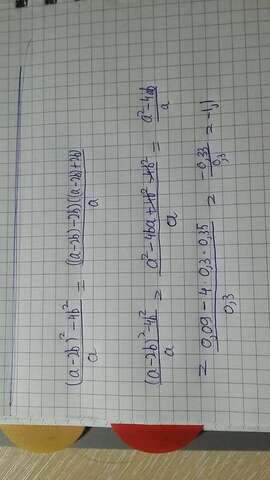 (a-2b)²-4b²/a = ((a-2b)-2b)((a-2b)+2b)/a
(a-2b)²-4b²/a = a²-4ba+4b²-4b²/a = a²-4ab/a
= 0,09-4·0,3·0,35/0,3 = -0,33/0,3 = -1,1